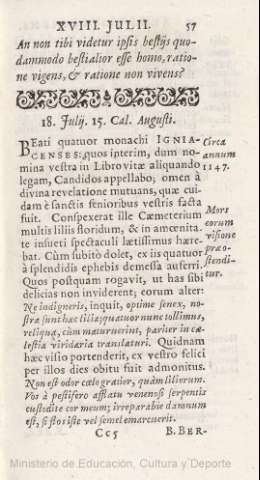 XVIII. JULII. 57
An non tibi videtur ipsis bestijs quo-
dammodo bestialior esse homo, ratio-
ne vigens, & ratione non vivens?
18. Julij. 15. Cal. Augusti.
BEati quatuor monachi IGNIA-
CENSES: quos interim, dum no-
mina vestra in Libro vitæ aliquando
legam, Candidos appellabo; omen à
divina revelatione mutuans, quæ cui-
dam è sanctis senioribus vestris facta
fuit. Conspexerat ille Cæmeterium
multis liliis floridum, & in amœnita-
te insueti spectaculi lætissimus hære-
bat. Cùm subitò dolet, ex iis quatuor
à splendidis ephebis demessa auferri.
Quos postquam rogavit, ut has sibi
delicias non inviderent; eorum alter:
Ne indigneris, inquit, optime senex, no-
stra sunt hæc lilia; quatuor nunc tollimus,
reliqua, cùm maturuerint, pariter in cæ-
lestia viridaria translaturi. Quidnam
hæc visio portenderit, ex vestro felici
per illos dies obitu fuit admonitus.
Non est odor cælo gratior, quàm lilierum.
Vos à pestifero afflatu venenosi serpentis
custodite cor meum; irreparabile damnum
est, si flos iste vel semel emarcuerit.
Cc5 B. BER-
Circa
annum
1147.
Mors
eorum
visione
præo-
stendi-
tur.
Ministerio de Educación, Cultura y Deporte